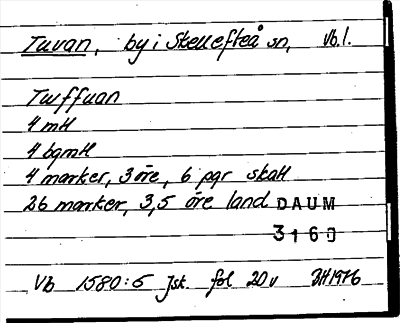 Tuvan, by i Skellefteå sn, Vb.l.
Twffuan
4 mtl
4 bgmtl
4 marker, 3 öre, 6 pgr skatt
26 marker, 3,5 öre land
DAUM
3160
Vb 1580:5 Jsk. fol 20v JH 1976